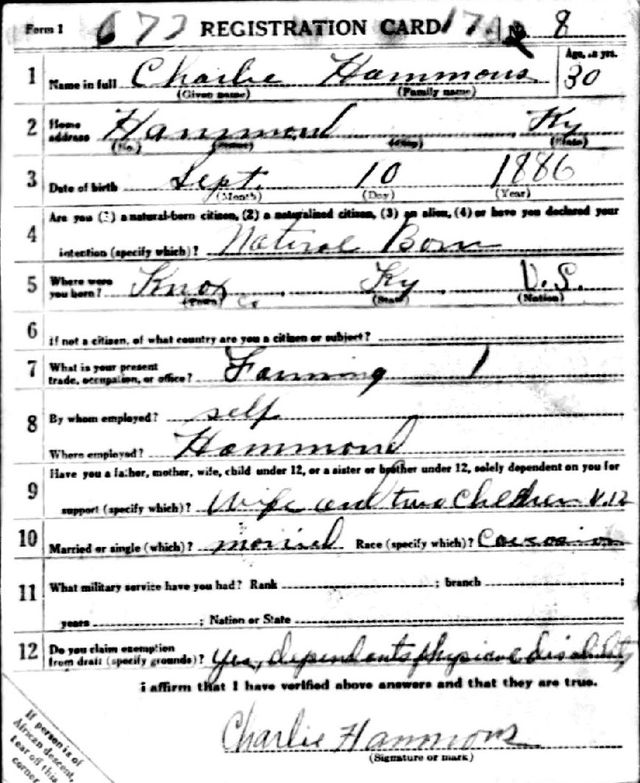 Form 1 677 REGISTRATION CARD 17 8
1 Name in full Charlie Hammons Age, in yrs. 30
(Given name) (Family name)
2 Home address Hammond Ky
(No.) (Street) (City) (State)
3 Date of birth Sept. 10 1886
(Month) (Day) (Year)
4 Are you (1) a natural-born citizen, (2) a naturalized citizen, (3) an alien, (4) or have you declared your
intention (specify which)? Natural Born
5 Where were you born? Knox Co. Ky U.S.
(Town) (State) (Nation)
6 If not a citizen, of what country are you a citizen or subject?
7 What is your present trade, occupation, or office? Farming 1
8 By whom employed? self
Where employed? Hammond
9 Have you a father, mother, wife, child under 12, or a sister or brother under 12, solely dependent on you for
support (specify which)? Wife and two Children U.12
10 Married or single (which)? married Race (specify which)? Caucasian
11 What military service have you had? Rank ; branch ;
years ; Nation or State
12 Do you claim exemption from draft (specify grounds)? Yes, dependants physical disability
I affirm that I have verified above answers and that they are true.
Charlie Hammons
(Signature or mark)
If person is of
African descent,
tear off this
corner